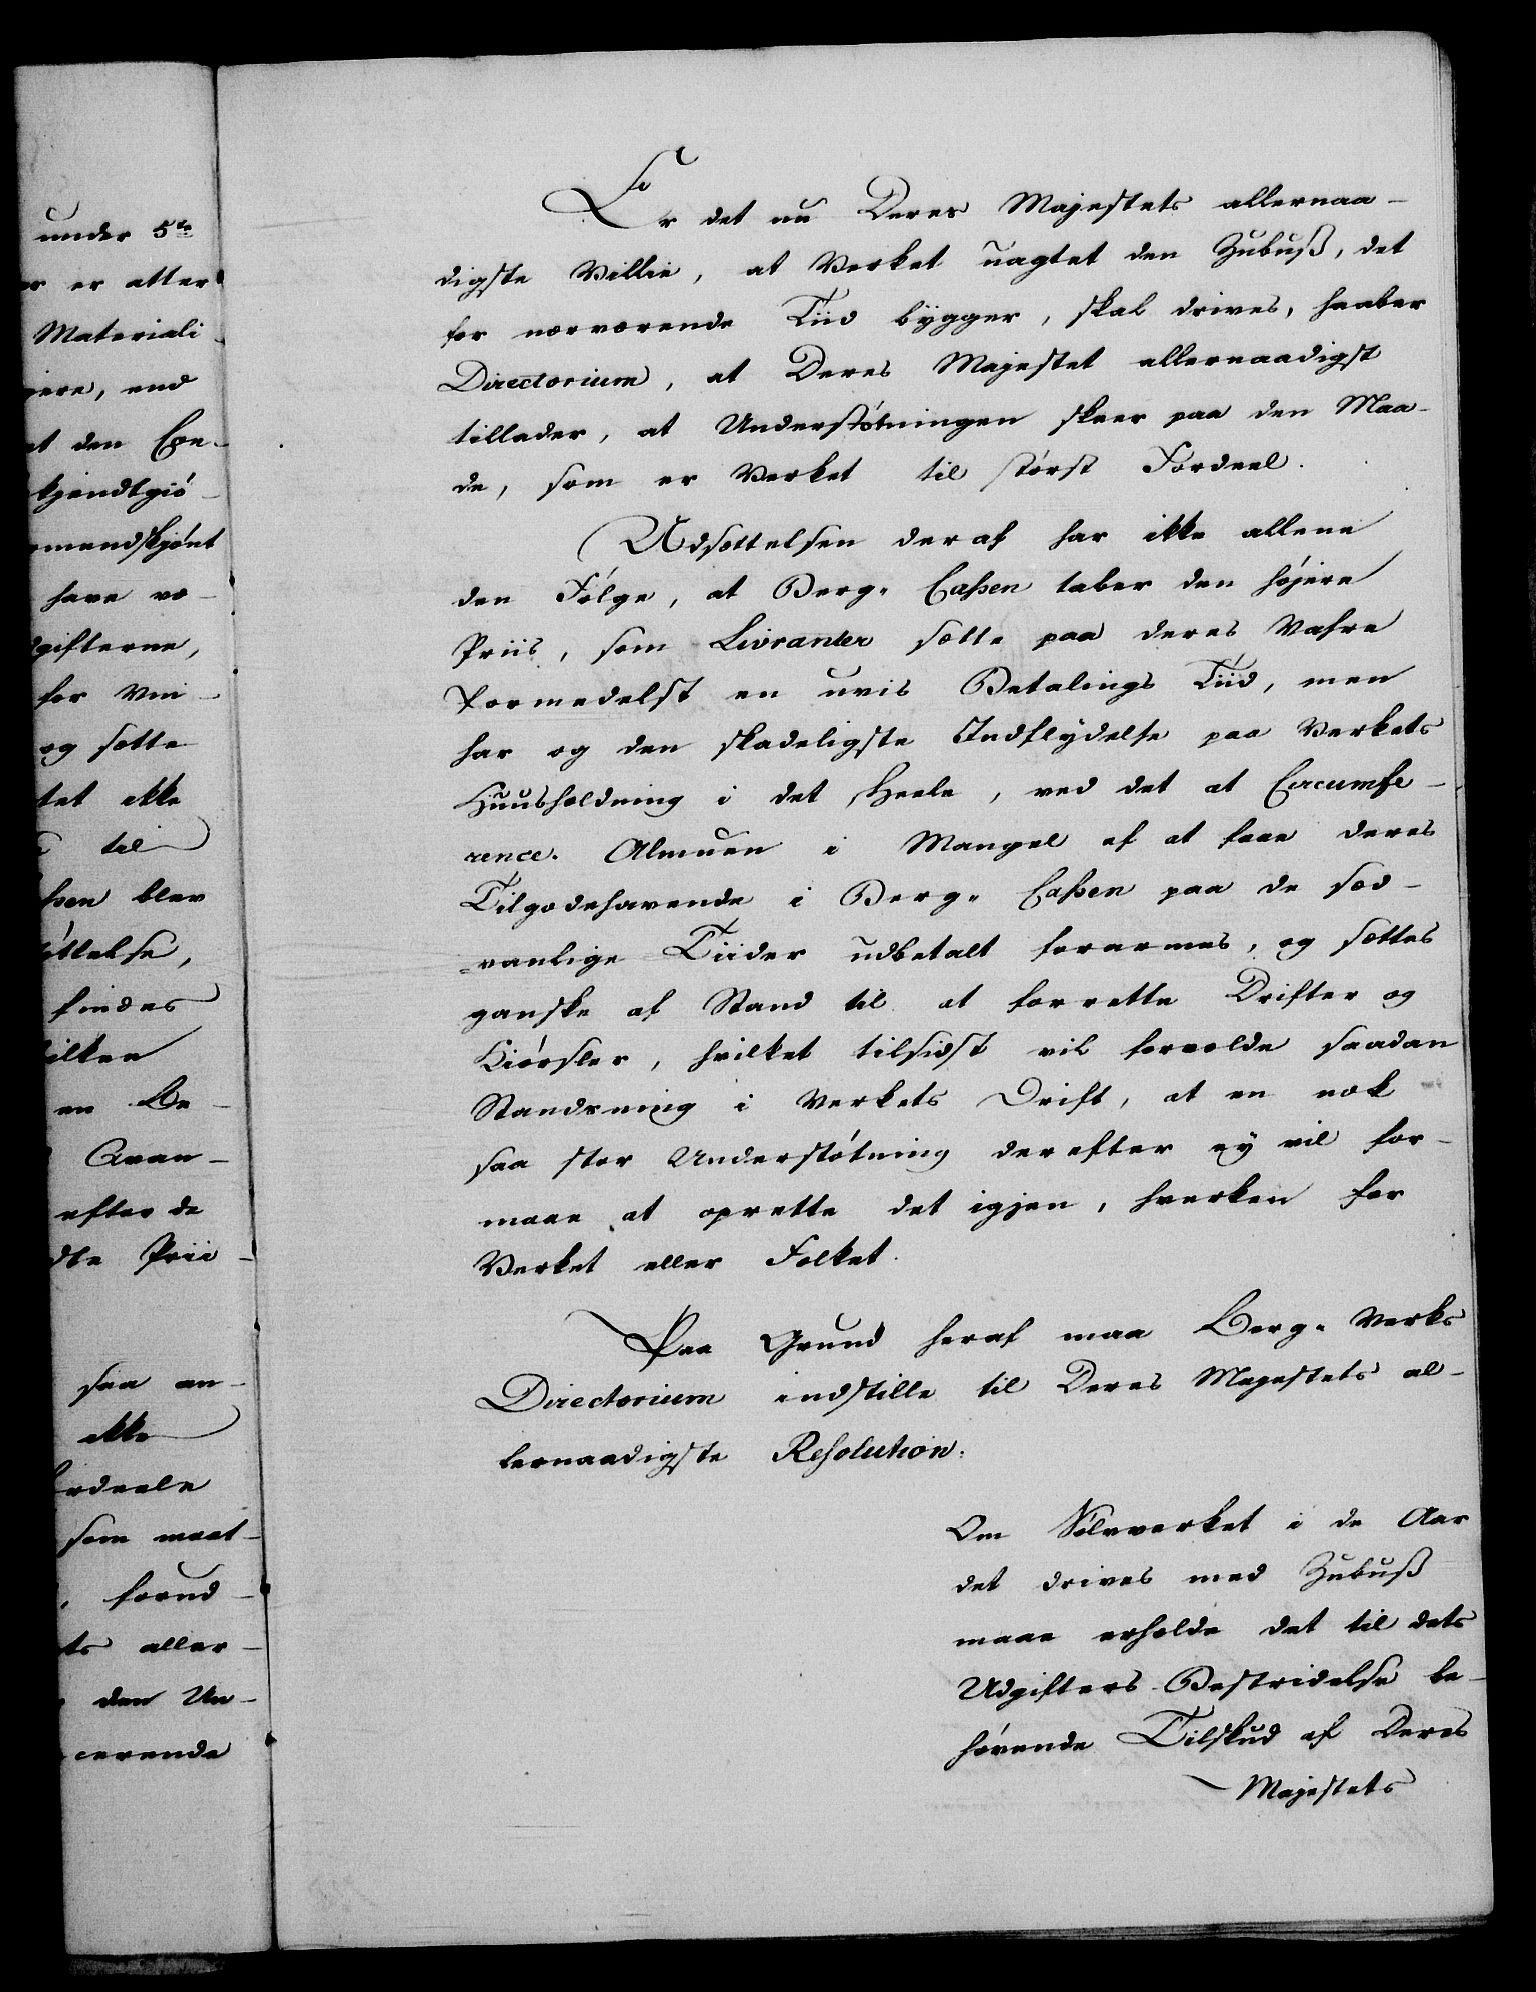 under 5te
er atter
Materiali
ere, end
at den Cre-
kjendtgiö-
mendskjönt
have væ-
dgifterne,
for Vni-
og sætte
tet ikke
til
ßen blev
öttelse,
findes
ilken
en Be-
Avan-
efter de
dte Prii-
saa an-
ikke
ordeele
som maat-
forud-
ts aller-
den Un-
cerende
Er det nu Deres Majestets allernaa-
digste Villie, at Verket uagtet den Zubuß, det
for nærværende Tiid bÿgger, skal drives, haaber
Directorium, at Deres Majestet allernaadigst
tillader, at Understötningen skeer paa den Maa-
de, som er Verket til störst Fordeel.
Udsættelsen deraf har ikke allene
den Fölge, at Berg-Caßen taber den höjere
Priis, som Livranter sætte paa deres Vahre
formedelst en uvis Betalings Tiid, men
har og den skadeligste Indflÿdelse paa Verkets
Huusholdning i det Heele, ved det at Circumfe-
rence-Almuen i Mangel af at faae deres
Tilgodehavende i Berg-Caßen paa de sæd-
vanlige Tiider udbetalt forarmes, og sættes
ganske af Stand til at forrette Drifter og
Kiörsler, hvilket tilsidst vil forvolde saadan
Standsning i Verkets Drift, at en nok
saa stor Understötning derefter eÿ vil for-
maae at oprette det igjen, hverken for
Verket eller Folket.
Paa Grund heraf maa Berg-Verks
Directorium indstille til Deres Majestets al-
lernaadigste Resolution:
Om Sölvverket i de Aar
det drives med Zubuß
maae erholde det til dets
Udgifters Bestridelse be-
hövende Tilskud af Deres
Majestets